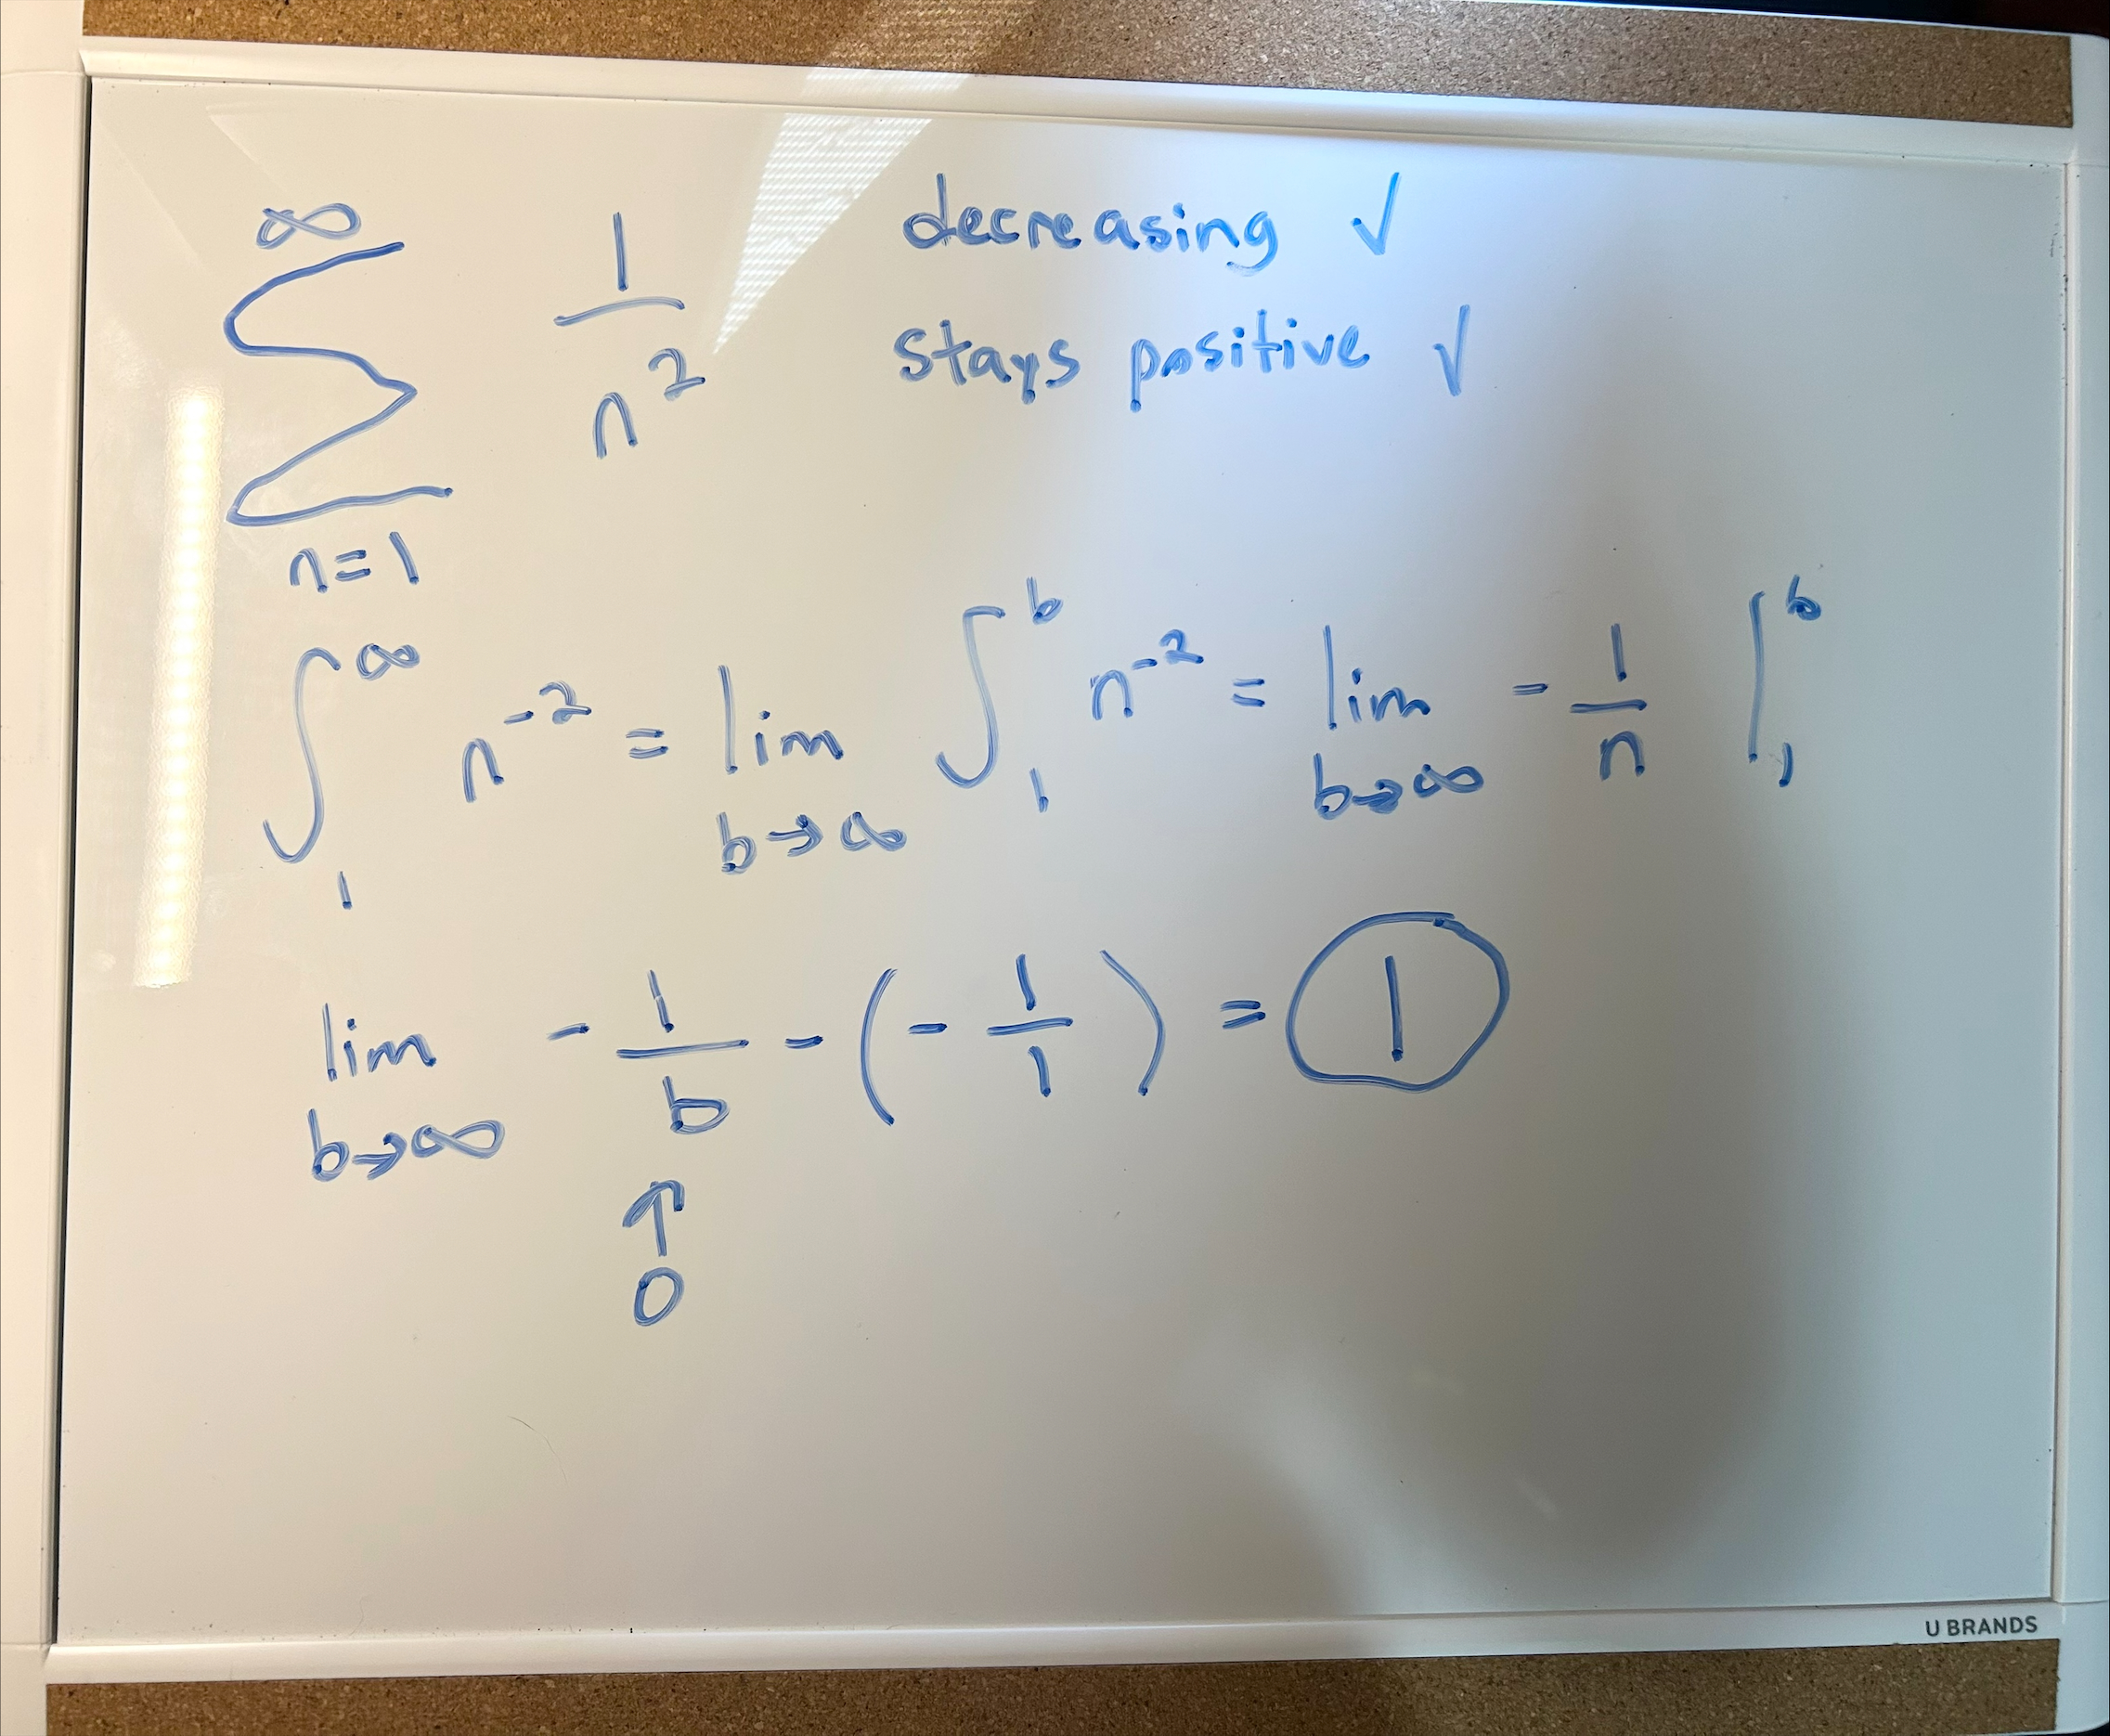 ∞
∑ 1/n² decreasing ✓
n=1 stays positive ✓
∫₁^∞ n⁻² = lim b→∞ ∫₁^b n⁻² = lim b→∞ -1/n |₁^b
lim b→∞ -1/b - (-1/1) = 1
↑
0
U BRANDS